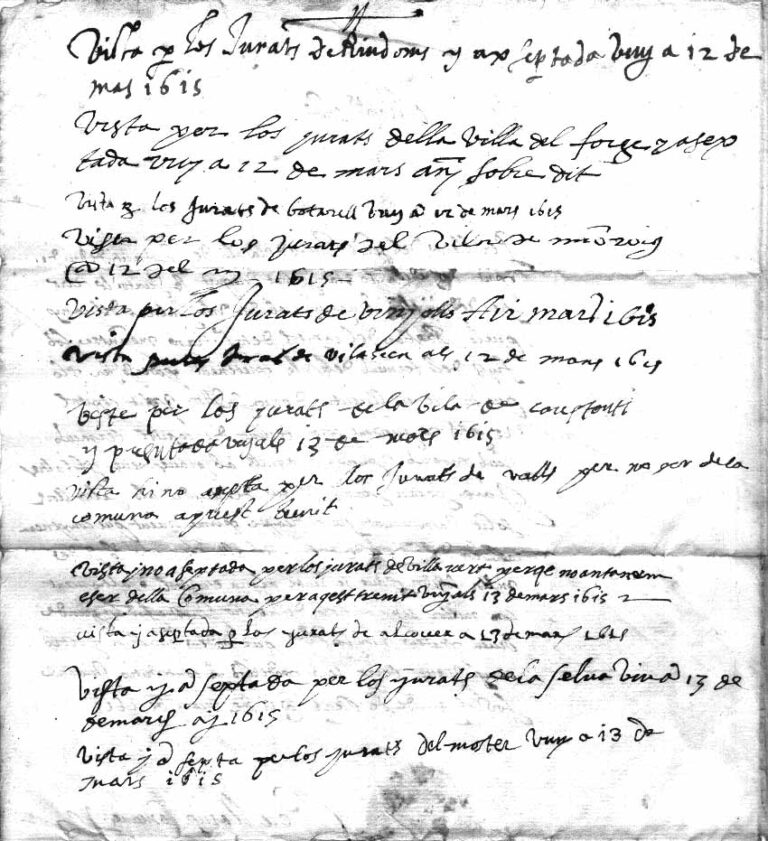 Vista p los Jurats de Riudoms y axseptada vuy a 12 de
mars 1615
Vista per los jurats della villa del forge y asep
tada vuy a 12 de mars any sobre dit
Vista p los Jurats de botarell vuy a 12 de mars 1615
Vista per los jurats del Vila de mōroig
a 12 del m 1615
Vista per los Jurats de vinyolls 12 mars 1615
Vista jurats de vilaseca als 12 de mars 1615
Viste per los jurats de la vila de constanti
y vuy als 13 de mars 1615
vista hi no per los Jurats de valls per no per de la
comuna aquest
Vista y no aseptada per los jurats de villavert perqe no antanem
eser della Comuna per aqest trenit vuy als 13 de mars 1615
vista y aseptada p los jurats de alcover a 13 de mars 1615
Vista y aseptada per los jurats de la selva vuy a 13 de
de mars 1615
Vista y asepta per los jurats del moster vuy a 13 de
mars 1615